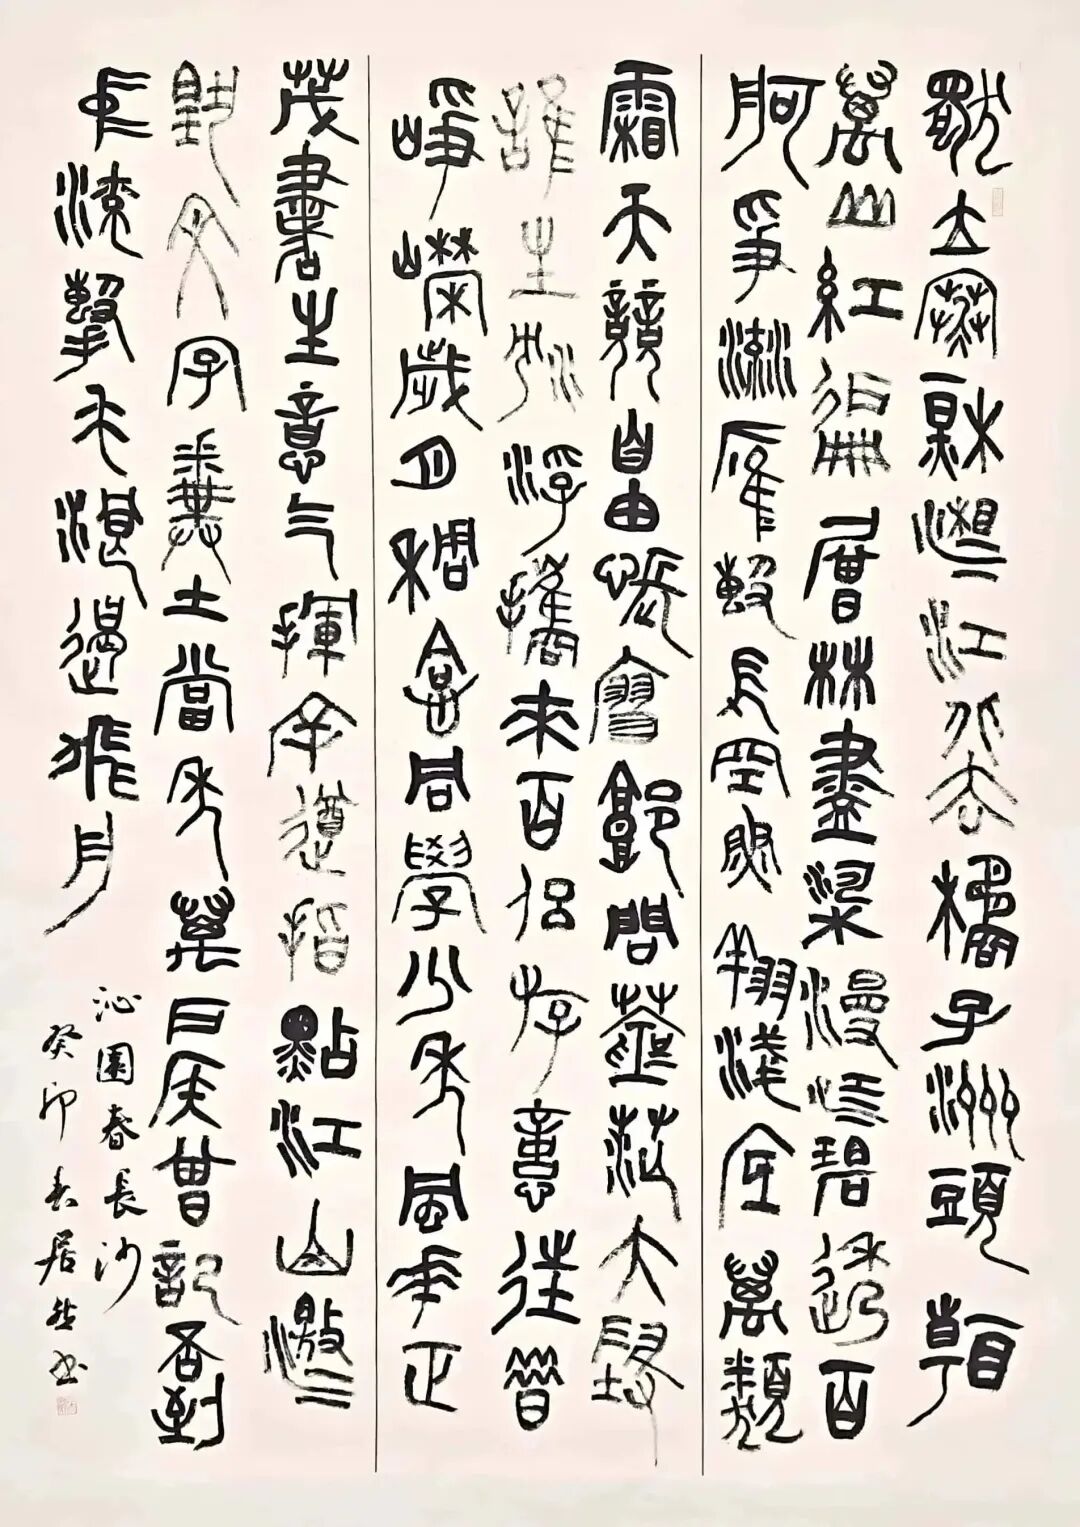 獨立寒秋湘江北去橘子洲頭看
萬山紅遍層林盡染漫江碧透百
舸爭流鷹擊長空魚翔淺底萬類
霜天競自由悵寥廓問蒼茫大地
誰主沉浮攜來百侶游憶往昔
崢嶸歲月稠恰同學少年風華正
茂書生意气揮斥遒指點江山激
揚文字糞土當年萬戶侯曾記否到
中流擊水浪遏飛舟
沁園春長沙
癸卯春居然书